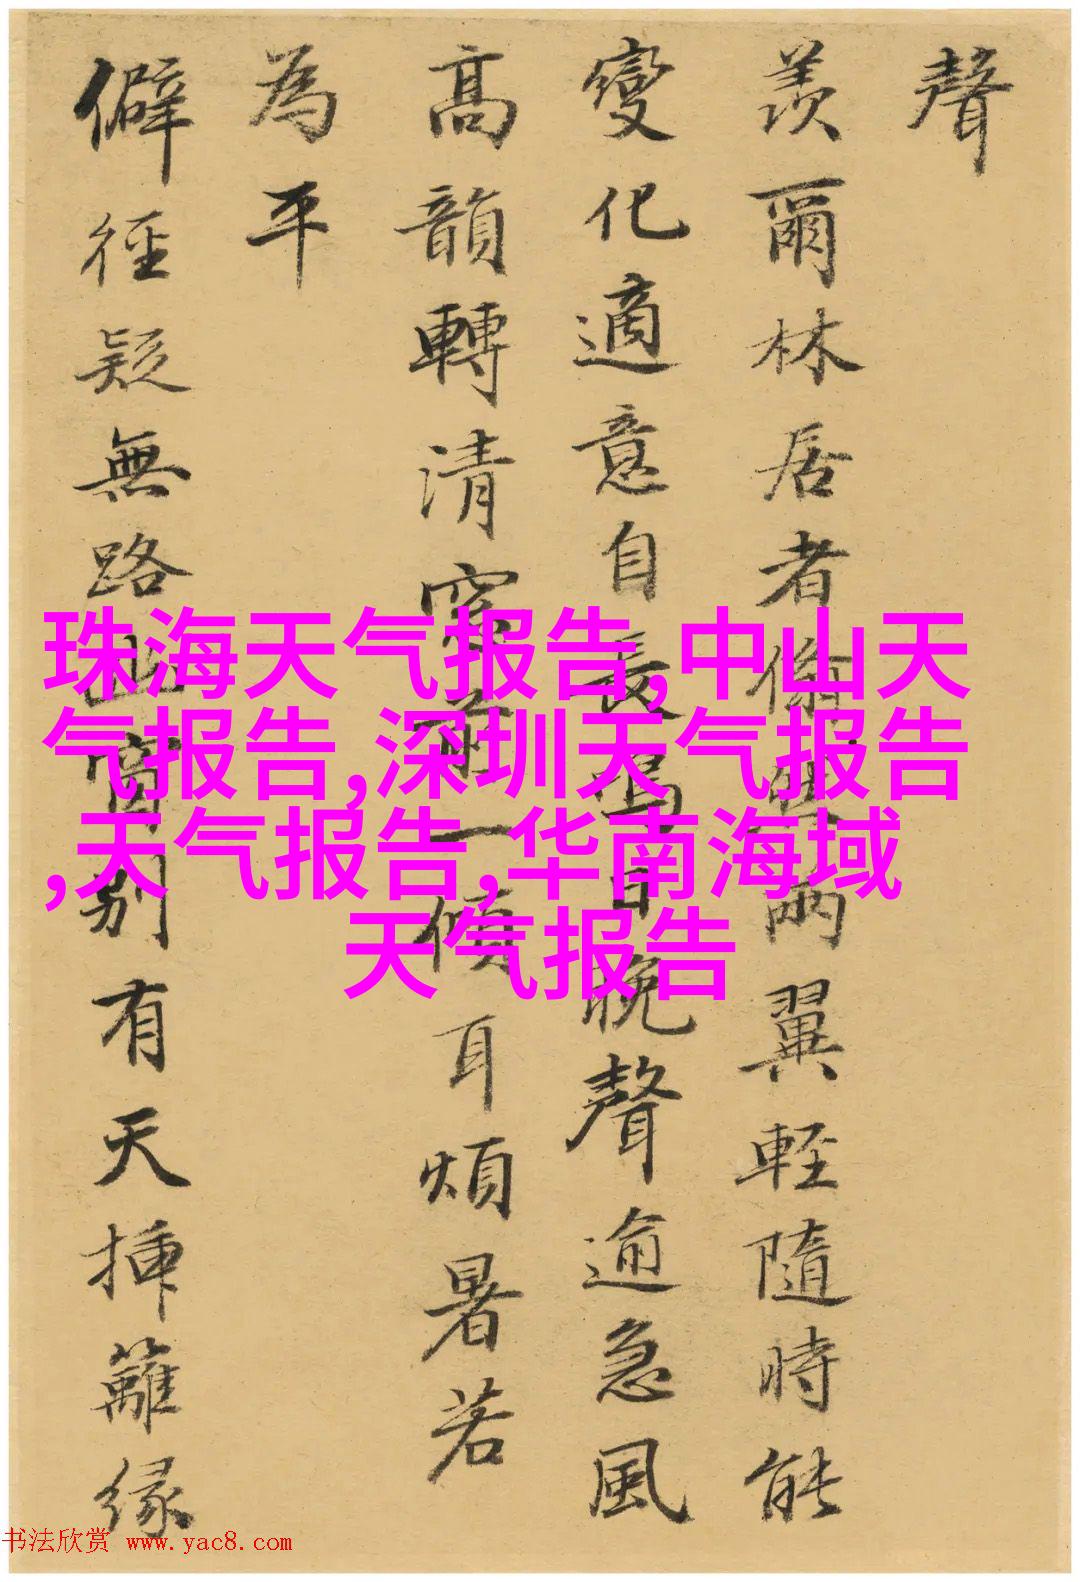 聲
羨爾林居者翛然兩翼輕隨時能
變化適意自長鳴日晚聲逾急風
高韻轉清窓前一傾耳煩暑若
為平
僻徑疑無路幽窗別有天插籬緣
珠海天气报告,中山天
气报告,深圳天气报告
,天气报告,华南海域
天气报告
书法欣赏 www.yac8.com